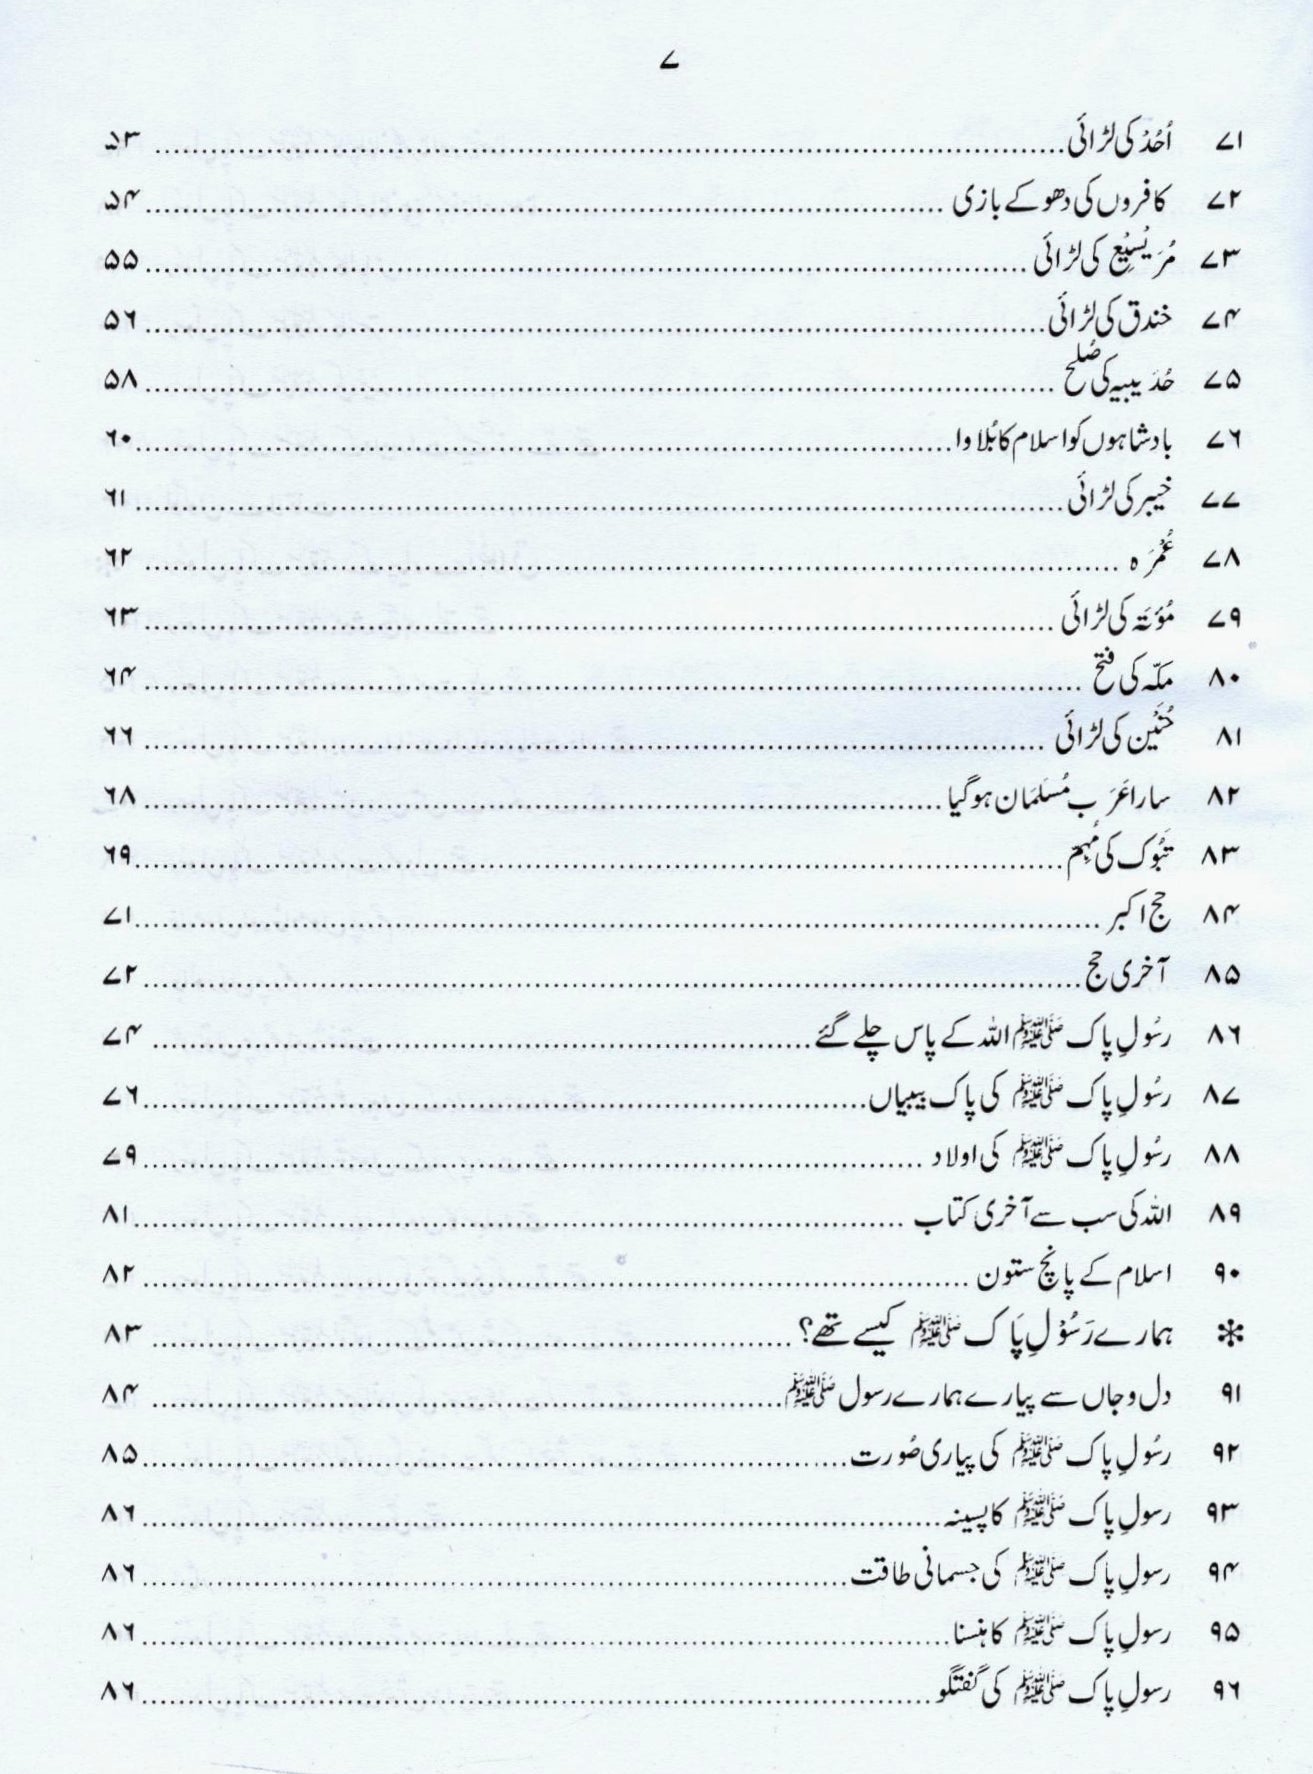 ۷
۷۱ اُحُدْ کی لڑائی ........ ۵۳
۷۲ کافروں کی دھوکے بازی ........ ۵۴
۷۳ مُرَیْسِیْع کی لڑائی ........ ۵۵
۷۴ خندق کی لڑائی ........ ۵۶
۷۵ حُدَیبیہ کی صُلح ........ ۵۸
۷۶ بادشاہوں کو اسلام کا بُلاوا ........ ۶۰
۷۷ خیبر کی لڑائی ........ ۶۱
۷۸ عُمْرَہ ........ ۶۲
۷۹ مُؤتَہ کی لڑائی ........ ۶۳
۸۰ مکّہ کی فتح ........ ۶۴
۸۱ حُنَیْن کی لڑائی ........ ۶۶
۸۲ سارا عَرَب مُسَلمَان ہو گیا ........ ۶۸
۸۳ تَبُوک کی مُہِم ........ ۶۹
۸۴ حج اکبر ........ ۷۱
۸۵ آخری حج ........ ۷۲
۸۶ رسُولِ پاک ﷺ اللہ کے پاس چلے گئے ........ ۷۴
۸۷ رسُولِ پاک ﷺ کی پاک بیبیاں ........ ۷۶
۸۸ رسُولِ پاک ﷺ کی اولاد ........ ۷۹
۸۹ اللہ کی سب سے آخری کتاب ........ ۸۱
۹۰ اسلام کے پانچ ستون ........ ۸۲
✻ ہمارے رَسُوْلِ پَاک ﷺ کیسے تھے؟ ........ ۸۳
۹۱ دل و جاں سے پیارے ہمارے رسول ﷺ ........ ۸۴
۹۲ رسُولِ پاک ﷺ کی پیاری صُورت ........ ۸۵
۹۳ رسولِ پاک ﷺ کا پسینہ ........ ۸۶
۹۴ رسولِ پاک ﷺ کی جسمانی طاقت ........ ۸۶
۹۵ رسولِ پاک ﷺ کا ہنسنا ........ ۸۶
۹۶ رسولِ پاک ﷺ کی گفتگو ........ ۸۶